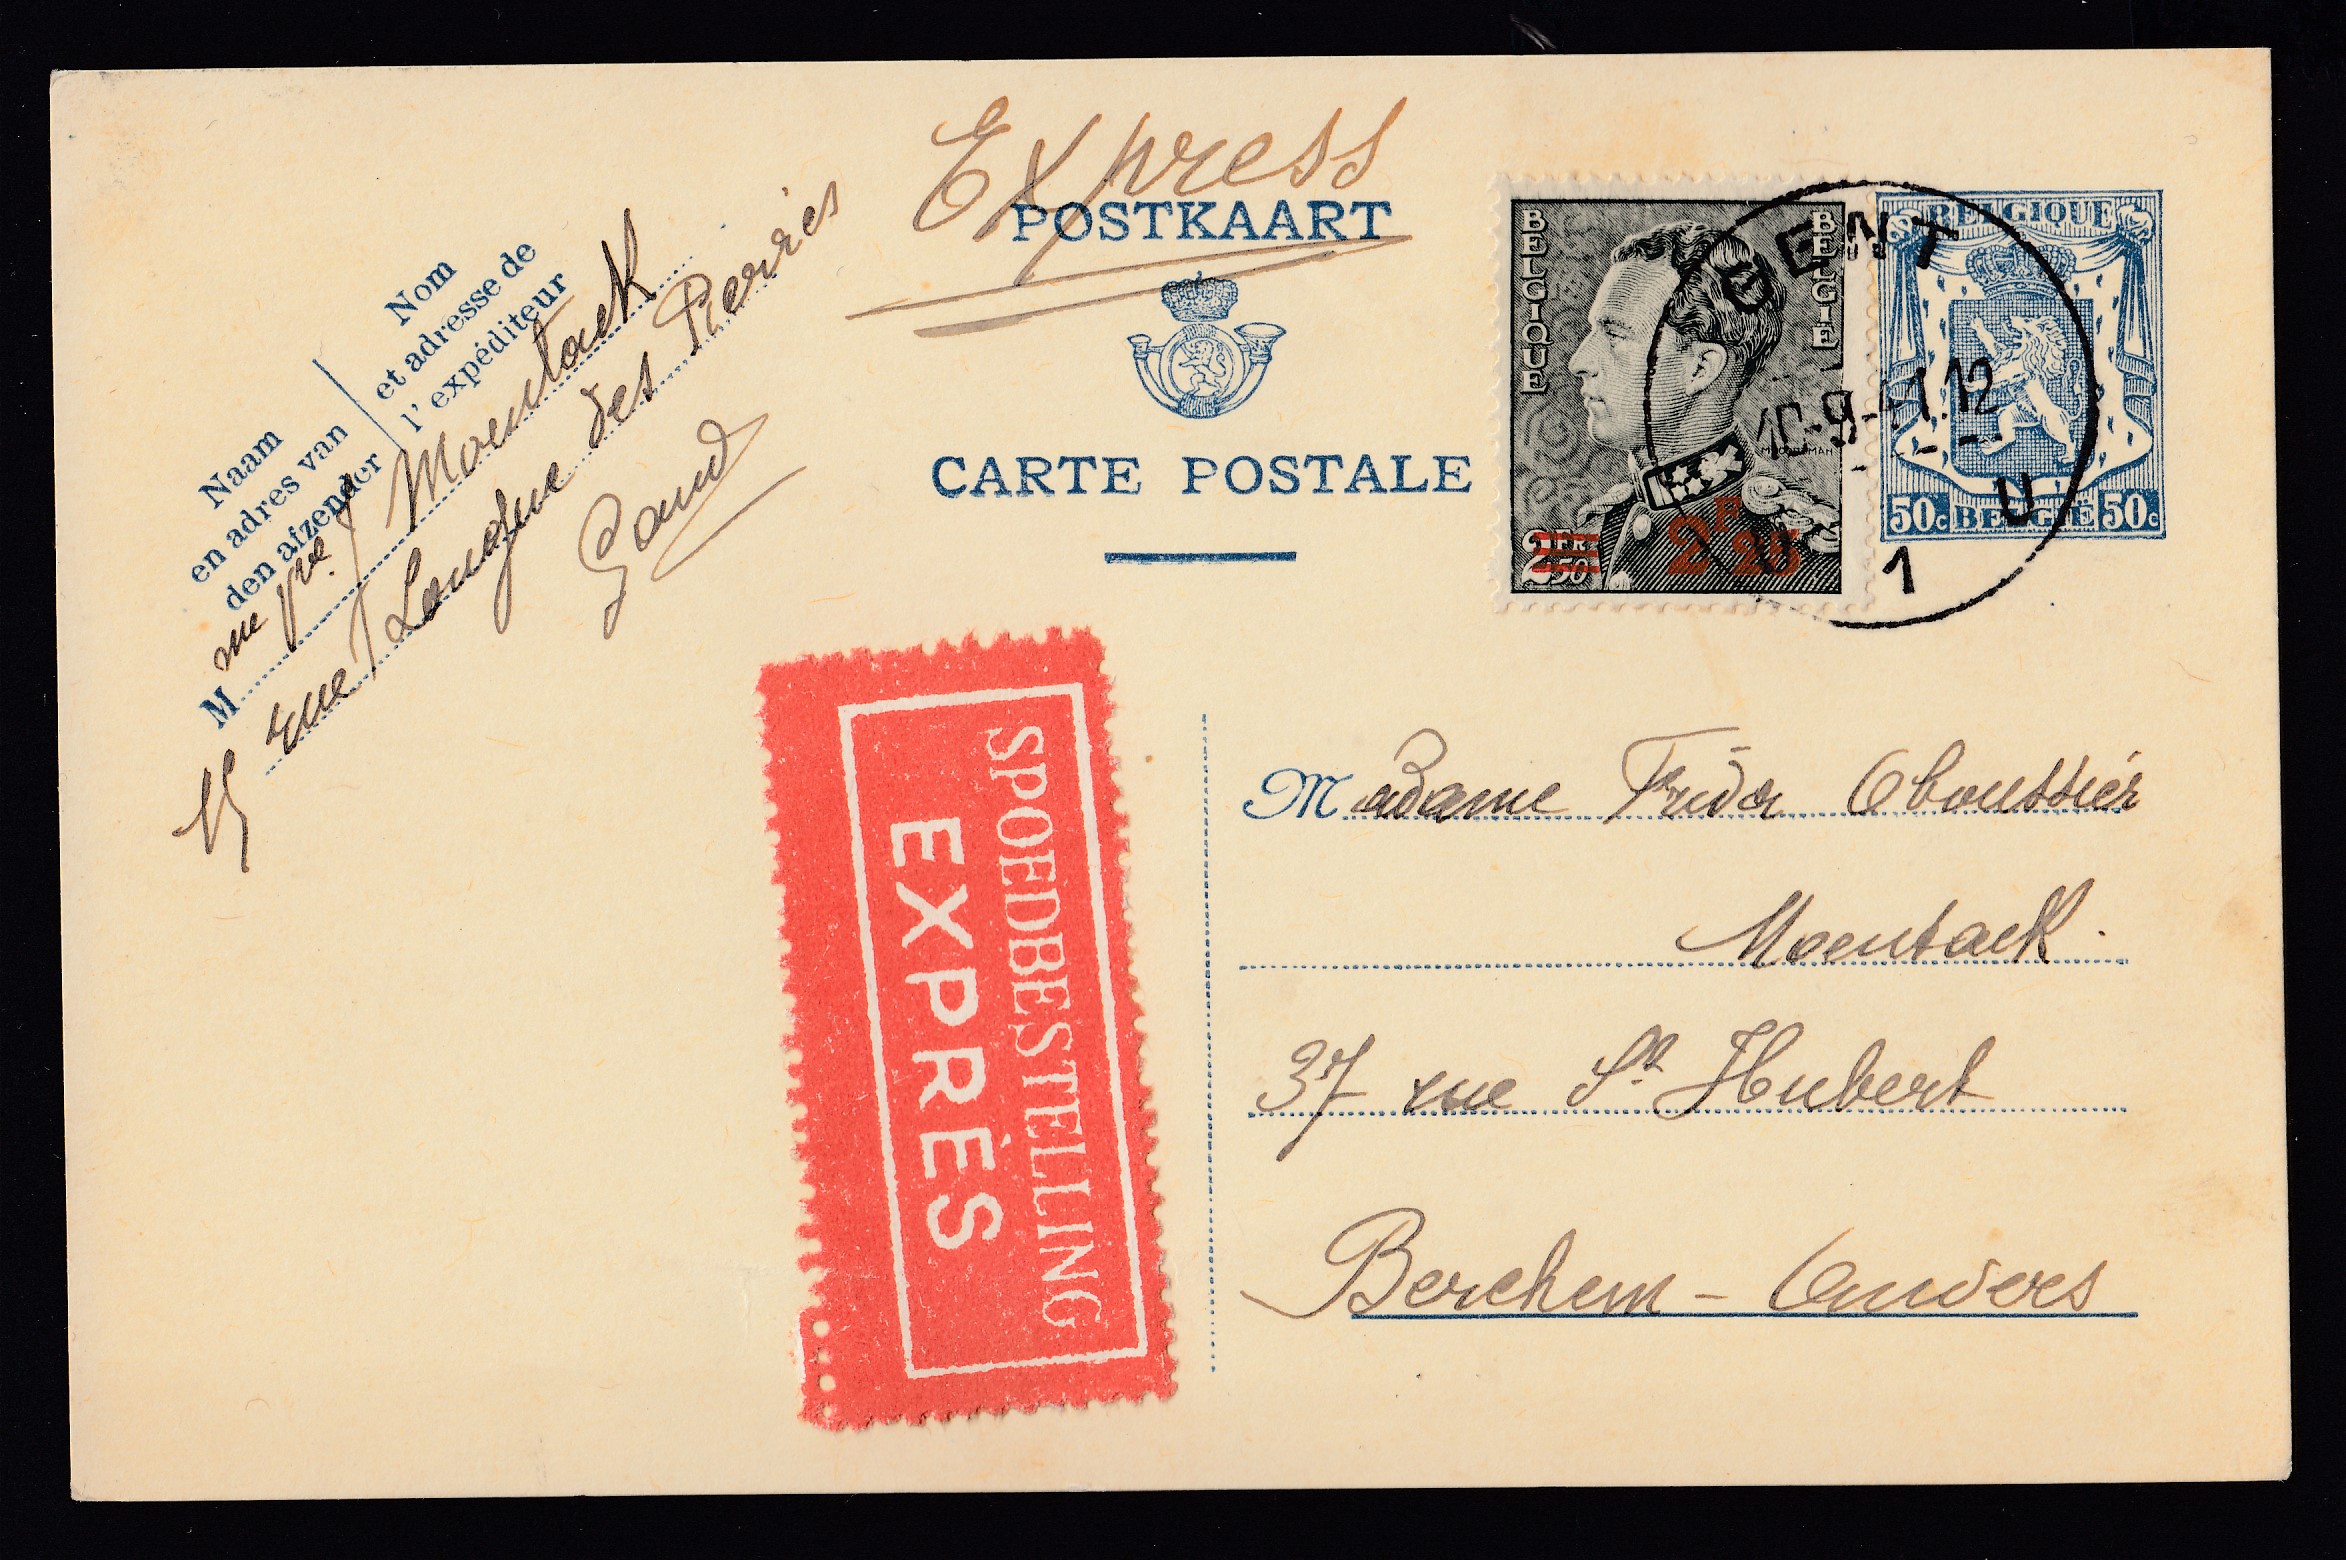 Express
POSTKAART
CARTE POSTALE
Nom
et adresse de
l'expéditeur
Naam
en adres van
den afzender
M
me Vve Moentack
15 rue Longue des Pierres
Gand
BELGIQUE
BELGIË
2 FR 50
2F 25
GENT
10-9-41.12
U
1
BELGIQUE
50c BELGIË 50c
SPOEDBESTELLING
EXPRÈS
Madame Frida Oboussier
Moentack.
37 rue St Hubert
Berchem - Anvers